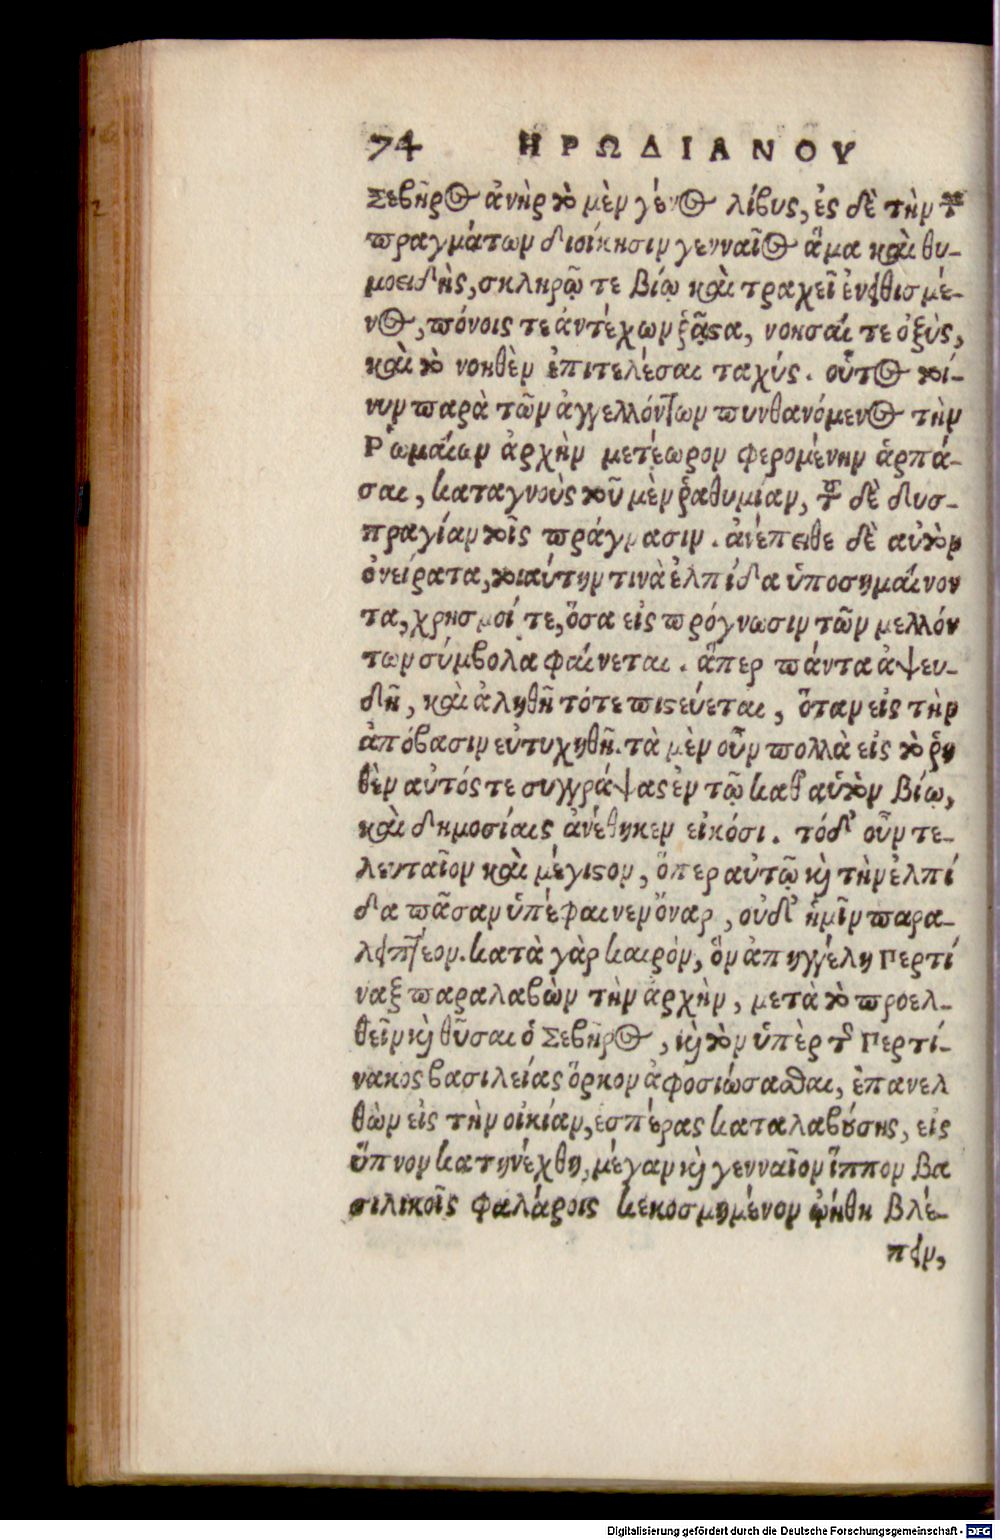 74 ΗΡΩΔΙΑΝΟΥ
Σεβῆρος ἀνὴρ τὸ μὲν γένος λίβυς, ἐς δὲ τὴν τῶν
πραγμάτων διοίκησιν γενναῖος ἅμα καὶ θυ-
μοειδὴς, σκληρῷ τε βίῳ καὶ τραχεῖ ἐνειθισμέ-
νος, πόνοις τε ἀντέχων ῥᾷστα, νοῆσαί τε ὀξὺς,
καὶ τὸ νοηθὲν ἐπιτελέσαι ταχύς. οὗτος τοί-
νυν παρὰ τῶν ἀγγελλόντων πυνθανόμενος τὴν
Ῥωμαίων ἀρχὴν μετέωρον φερομένην ἁρπά-
σαι, καταγνοὺς τοῦ μὲν ῥαθυμίαν, τῶν δὲ δυσ-
πραγίαν τοῖς πράγμασιν. ἀνέπειθε δὲ αὐτὸν
ὀνείρατα, τοιαύτην τινὰ ἐλπίδα ὑποσημαίνον
τα, χρησμοί τε, ὅσα εἰς πρόγνωσιν τῶν μελλόν
των σύμβολα φαίνεται. ἅπερ πάντα ἀψευ-
δῆ, καὶ ἀληθῆ τότε πιστεύεται, ὅταν εἰς τὴν
ἀπόβασιν εὐτυχηθῇ. τὰ μὲν οὖν πολλὰ εἰς τὸ ῥη
θὲν αὐτός τε συγγράψας ἐν τῷ καθ' αὑτὸν βίῳ,
καὶ δημοσίαις ἀνέθηκεν εἰκόσι. τόδ' οὖν τε-
λευταῖον καὶ μέγιστον, ὅπερ αὐτῷ καὶ τὴν ἐλπί
δα πᾶσαν ὑπέφαινεν ὄναρ, οὐδ' ἡμῖν παρα-
λειπτέον. κατὰ γὰρ καιρὸν, ὃν ἀπηγγέλη Περτί
ναξ παραλαβὼν τὴν ἀρχὴν, μετὰ τὸ προελ-
θεῖν καὶ θῦσαι ὁ Σεβῆρος, καὶ τὸν ὑπὲρ τῆς Περτί-
νακος βασιλείας ὅρκον ἀφοσιώσασθαι, ἐπανελ
θὼν εἰς τὴν οἰκίαν, ἑσπέρας καταλαβούσης, εἰς
ὕπνον κατηνέχθη, μέγαν καὶ γενναῖον ἵππον βα
σιλικοῖς φαλάροις κεκοσμημένον ᾠήθη βλέ-
πειν,
Digitalisierung gefördert durch die Deutsche Forschungsgemeinschaft - DFG